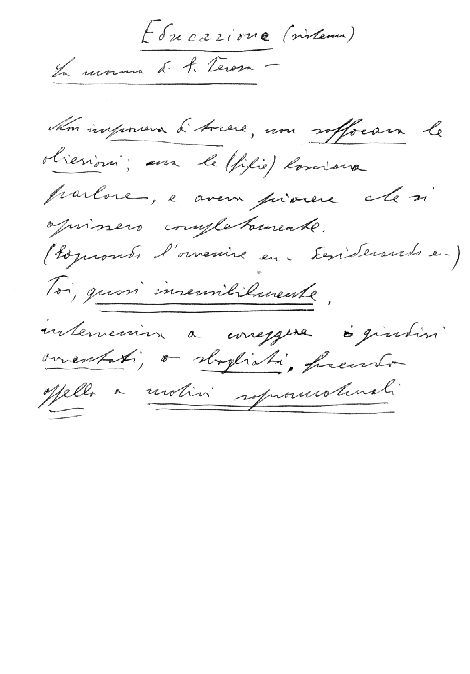 Educazione (sistema)
La mamma di S. Teresa —
Non imponeva di tacere, non soffocava le
obiezioni; ma le (figlie) lasciava
parlare, e aveva piacere che si
aprissero completamente.
(Sognando l'avvenire ecc. desiderando ecc.)
Poi, quasi insensibilmente,
interveniva a correggere i giudizi
avventati, o sbagliati, facendo
appello a motivi soprannaturali